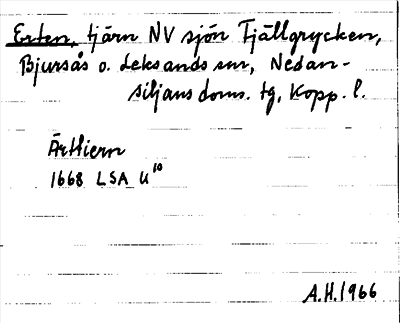 Erten, tjärn NV sjön Fjällgrycken,
Bjursås o. Leksands snr, Nedan-
siljans doms. tg, Kopp. l.
Ärthiern
1668 LSA U¹⁰
A.H. 1966